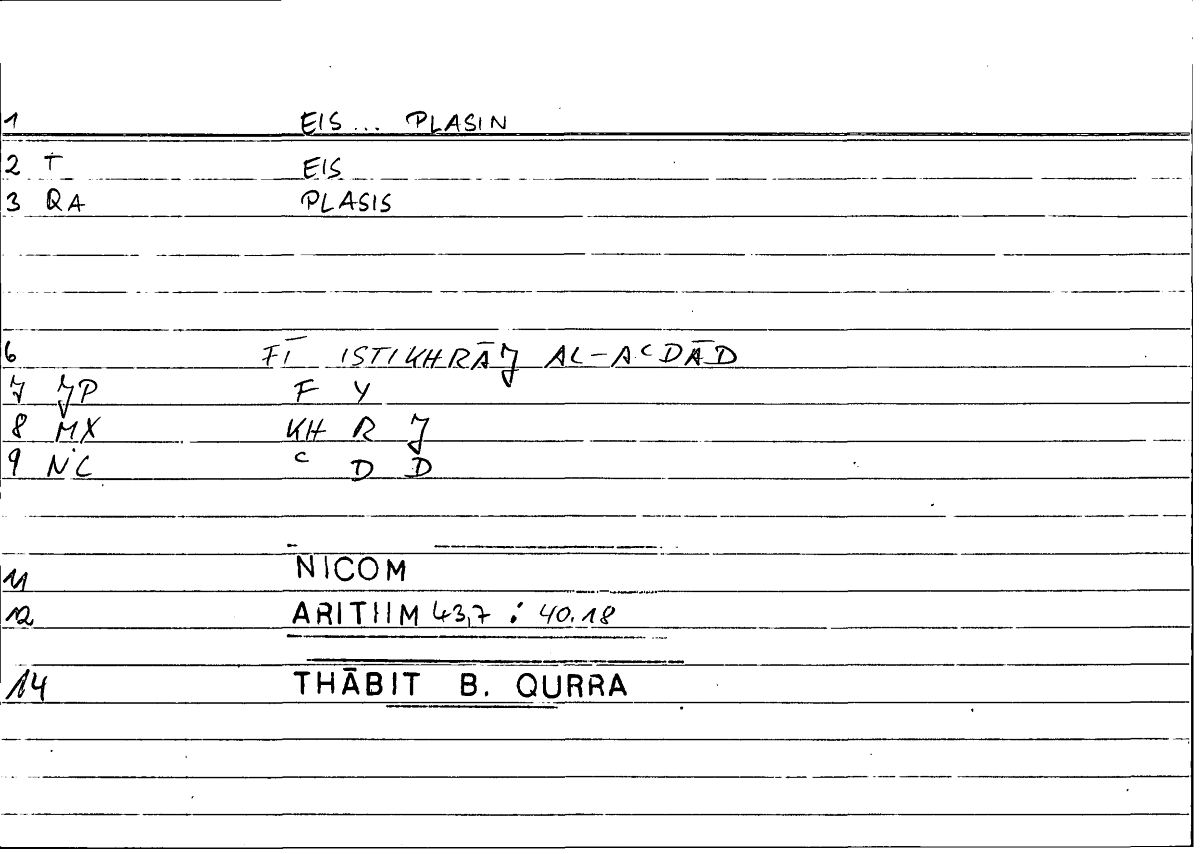 1 EIS... PLASIN
2 T EIS
3 QA PLASIS
6 FĪ ISTIKHRĀJ AL-AᶜDĀD
7 JP F Y
8 MX KH R J
9 NC ᶜ D D
11 NICOM
12 ARITHM 43,7 : 40.18
14 THĀBIT B. QURRA